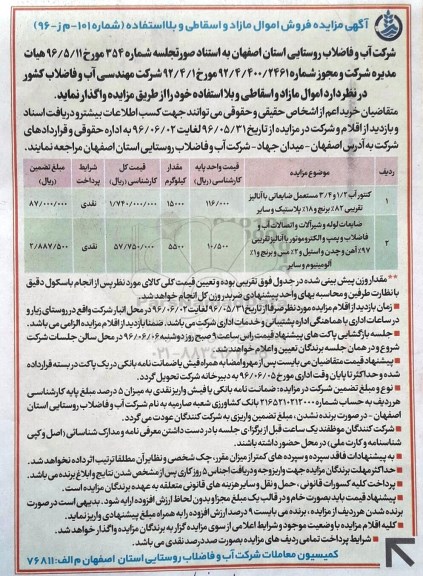 آگهی مزایده فروش اموال مازاد و اسقاطی و بلااستفاده (شماره ۱۰۱-م ز-۹۶)
شرکت آب و فاضلاب روستایی استان اصفهان به استناد صورتجلسه شماره ۳۵۴ مورخ ۹۶/۵/۱۱ هیات
مدیره شرکت و مجوز شماره ۹۲/۴/۴۰۰/۲۴۶۱ مورخ ۹۲/۴/۱ شرکت مهندسی آب و فاضلاب کشور
در نظر دارد اموال مازاد و اسقاطی و بلا استفاده خود را از طریق مزایده واگذار نماید.
متقاضیان خرید اعم از اشخاص حقیقی و حقوقی می توانند جهت کسب اطلاعات بیشتر و دریافت اسناد
و بازدید از اقلام و شرکت در مزایده از تاریخ ۹۶/۰۵/۳۱ لغایت ۹۶/۰۶/۰۲ به اداره حقوقی و قراردادهای
شرکت به آدرس اصفهان - میدان جهاد - شرکت آب و فاضلاب روستایی استان اصفهان مراجعه نمایند.
ردیف موضوع مزایده قیمت واحد پایه کارشناسی (ریال) مقدار کیلوگرم قیمت کل کارشناسی (ریال) شرایط پرداخت مبلغ تضمین (ریال)
۱ کنتور آب ۱/۲ و ۳/۴ مستعمل ضایعاتی با آنالیز تقریبی ۸۲٪ برنج و ۱۸٪ پلاستیک و سایر ۱۱۶/۰۰۰ ۱۵۰۰۰ ۱/۷۴۰/۰۰۰/۰۰۰ نقدی ۸۷/۰۰۰/۰۰۰
۲ ضایعات لوله و شیرآلات و اتصالات آب و فاضلاب و پمپ و الکتروموتور با آنالیز تقریبی ۹۷٪ آهن و چدن و استیل و ۲٪ مس و برنج و ۱٪ آلومینیوم و سایر ۱۰/۵۰۰ ۵۵۰۰ ۵۷/۷۵۰/۰۰۰ نقدی ۲/۸۸۷/۵۰۰
** مقدار وزن پیش بینی شده در جدول فوق تقریبی بوده و تعیین قیمت کلی کالای مورد نظر پس از انجام باسکول دقیق
با نظارت طرفین و محاسبه بهای واحد پیشنهادی ضربدر وزن کل انجام خواهد شد.
زمان بازدید از اقلام مزایده مورد نظر صرفا از تاریخ ۹۶/۰۵/۳۱ لغایت ۹۶/۰۶/۰۲ در محل انبار شرکت واقع در روستای زیار و
در ساعات اداری با هماهنگی اداره پشتیبانی و خدمات اداری شرکت می باشد. ضمنا بازدید از اقلام مزایده الزامی می باشد.
جلسه بازگشایی پاکت های پیشنهاد قیمت راس ساعت ۹ صبح روز دوشنبه ۹۶/۰۶/۰۶ در محل سالن جلسات شرکت
شروع و در همان جلسه برندگان تعیین و اعلام خواهند شد.
پیشنهاد قیمت متقاضیان می بایست پس از مهر و امضا به همراه فیش یا ضمانت نامه بانکی در یک پاکت در بسته قرار داده
شده و حداکثر تا پایان وقت اداری مورخ ۹۶/۰۶/۰۵ به دبیرخانه شرکت تحویل گردد.
نوع و مبلغ تضمین شرکت در مزایده: ضمانت نامه بانکی یا فیش واریز نقدی به میزان ۵ درصد مبلغ پایه کارشناسی
هر ردیف به حساب شماره ۲۱۶۵۲۱۰۲۱۲۰۰۰ بانک کشاورزی شعبه صارمیه به نام شرکت آب و فاضلاب روستایی استان
اصفهان - در صورت برنده نشدن، مبلغ تضمین واریزی به شرکت کنندگان عودت می گردد.
شرکت کنندگان موظفند یک ساعت قبل از برگزاری جلسه با در دست داشتن معرفی نامه و مدارک شناسائی (اصل و کپی
شناسنامه و کارت ملی) در محل حضور داشته باشند.
به پیشنهادات فاقد سپرده و سپرده های کمتر از میزان مقرر، چک شخصی و نظایر آن مطلقا ترتیب اثر داده نخواهد شد.
حداکثر مهلت برندگان مزایده جهت واریز وجه و دریافت اجناس ۵ روز کاری پس از مشخص شدن نتایج و ابلاغ برنده می باشد.
پرداخت کلیه کسورات قانونی، حمل و نقل و سایر هزینه های قانونی متعلقه به عهده برندگان مزایده است.
پیشنهاد قیمت باید بصورت خام و در قالب یک مبلغ مجزا و بدون لحاظ ارزش افزوده ارایه شود. بدیهی است در صورت
برنده شدن هر ردیف از مزایده، برنده می بایست ۹ درصد ارزش افزوده را به همراه مبلغ پیشنهادی واریز نماید.
کلیه اقلام مزایده با وضعیت موجود و شرایط اعلامی از سوی مزایده گزار به برندگان مزایده واگذار خواهد شد.
شرایط پرداخت تمامی ردیف های مزایده بصورت صددرصد نقدی می باشد.
کمیسیون معاملات شرکت آب و فاضلاب روستایی استان اصفهان م الف: ۷۶۸۱۱